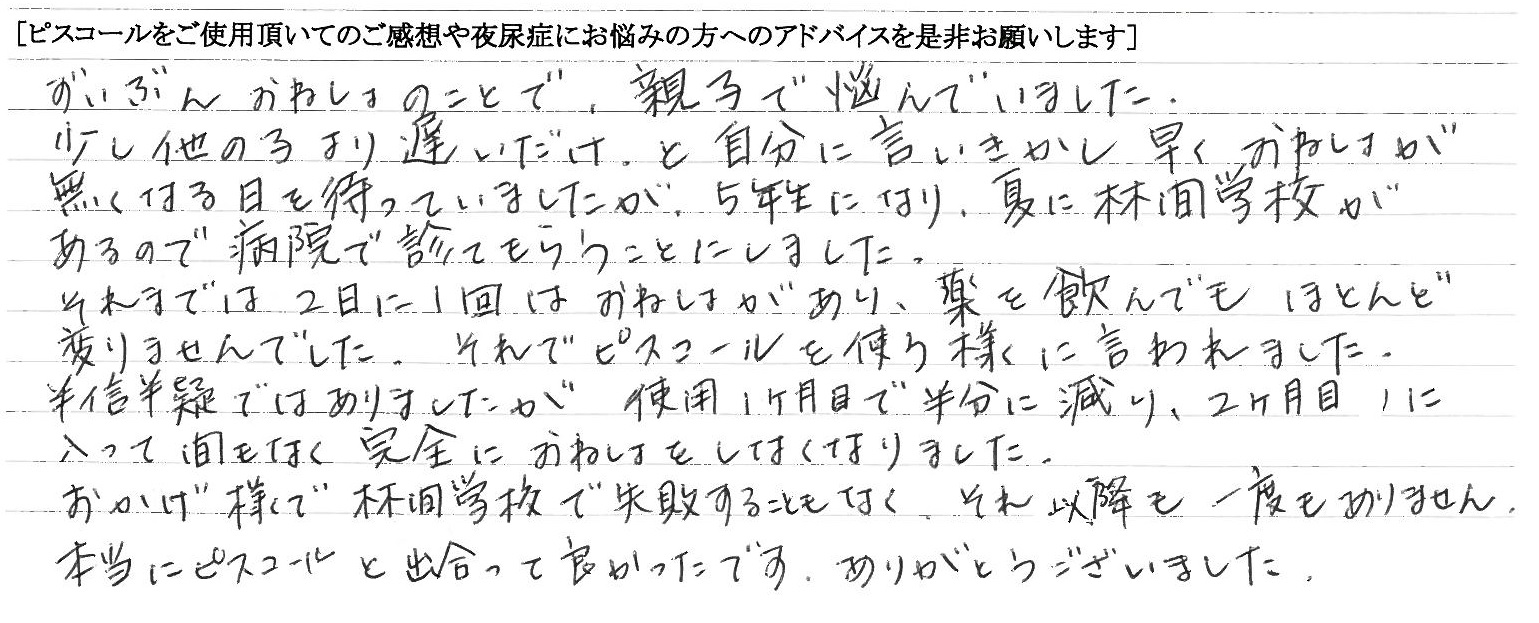 [ピスコールをご使用頂いてのご感想や夜尿症にお悩みの方へのアドバイスを是非お願いします]
ずいぶん おねしょのことで、親子で悩んでいました。
少し他の子より遅いだけ、と自分に言いきかし 早くおねしょが
無くなる日を待っていましたが、5年生になり、夏に林間学校が
あるので病院で診てもらうことにしました。
それまでは 2日に1回は おねしょがあり、薬を飲んでもほとんど
変りませんでした。それでピスコールを使う様に言われました。
半信半疑ではありましたが 使用1ヶ月目で半分に減り、2ヶ月目に
入って間もなく 完全におねしょをしなくなりました。
おかげ様で林間学校で失敗することもなく、それ以降も一度もありません。
本当にピスコールと出合って良かったです。ありがとうございました。